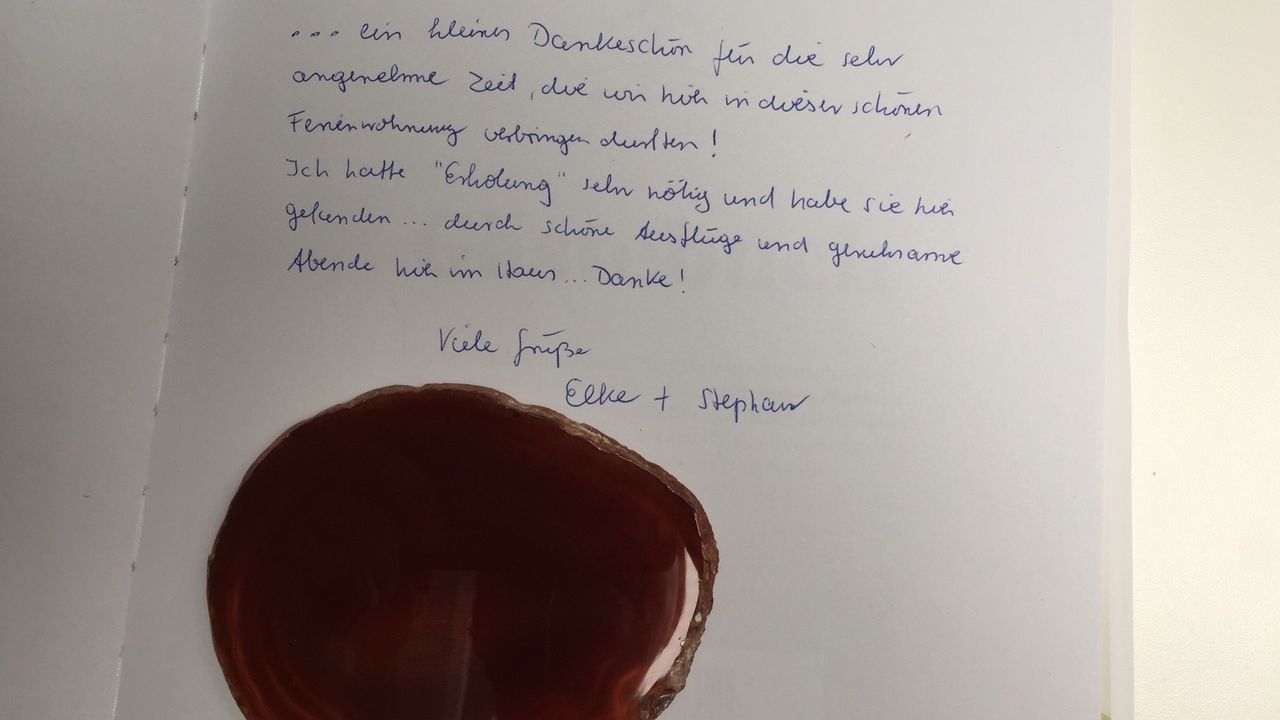 ... ein kleines Dankeschön für die sehr
angenehme Zeit, die wir hier in dieser schönen
Ferienwohnung verbringen durften!
Ich hatte "Erholung" sehr nötig und habe sie hier
gefunden ... durch schöne Ausflüge und geruhsame
Abende hier im Haus ... Danke!
Viele Grüße
Elke + Stephan